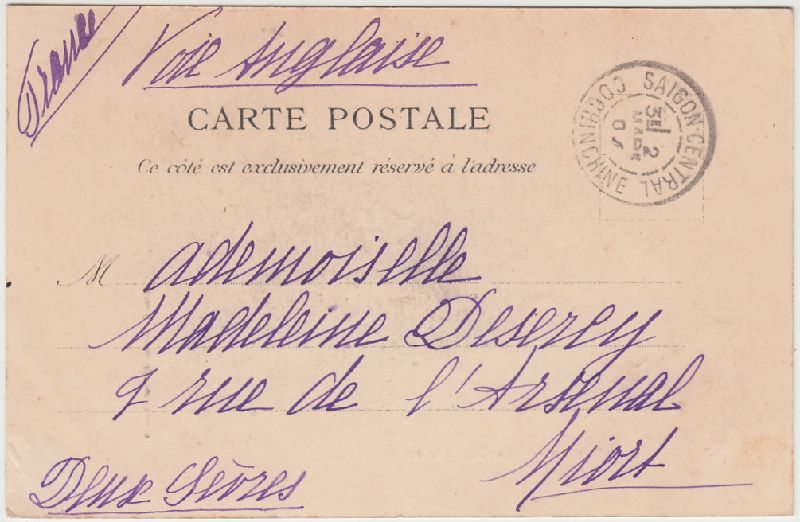 France
Voie Anglaise
CARTE POSTALE
Ce côté est exclusivement réservé à l'adresse
SAIGON-CENTRAL
COCHINCHINE
3E 2
MARS
Mademoiselle
Madeleine
rue de l'Arsenal
Niort
Deux Sèvres